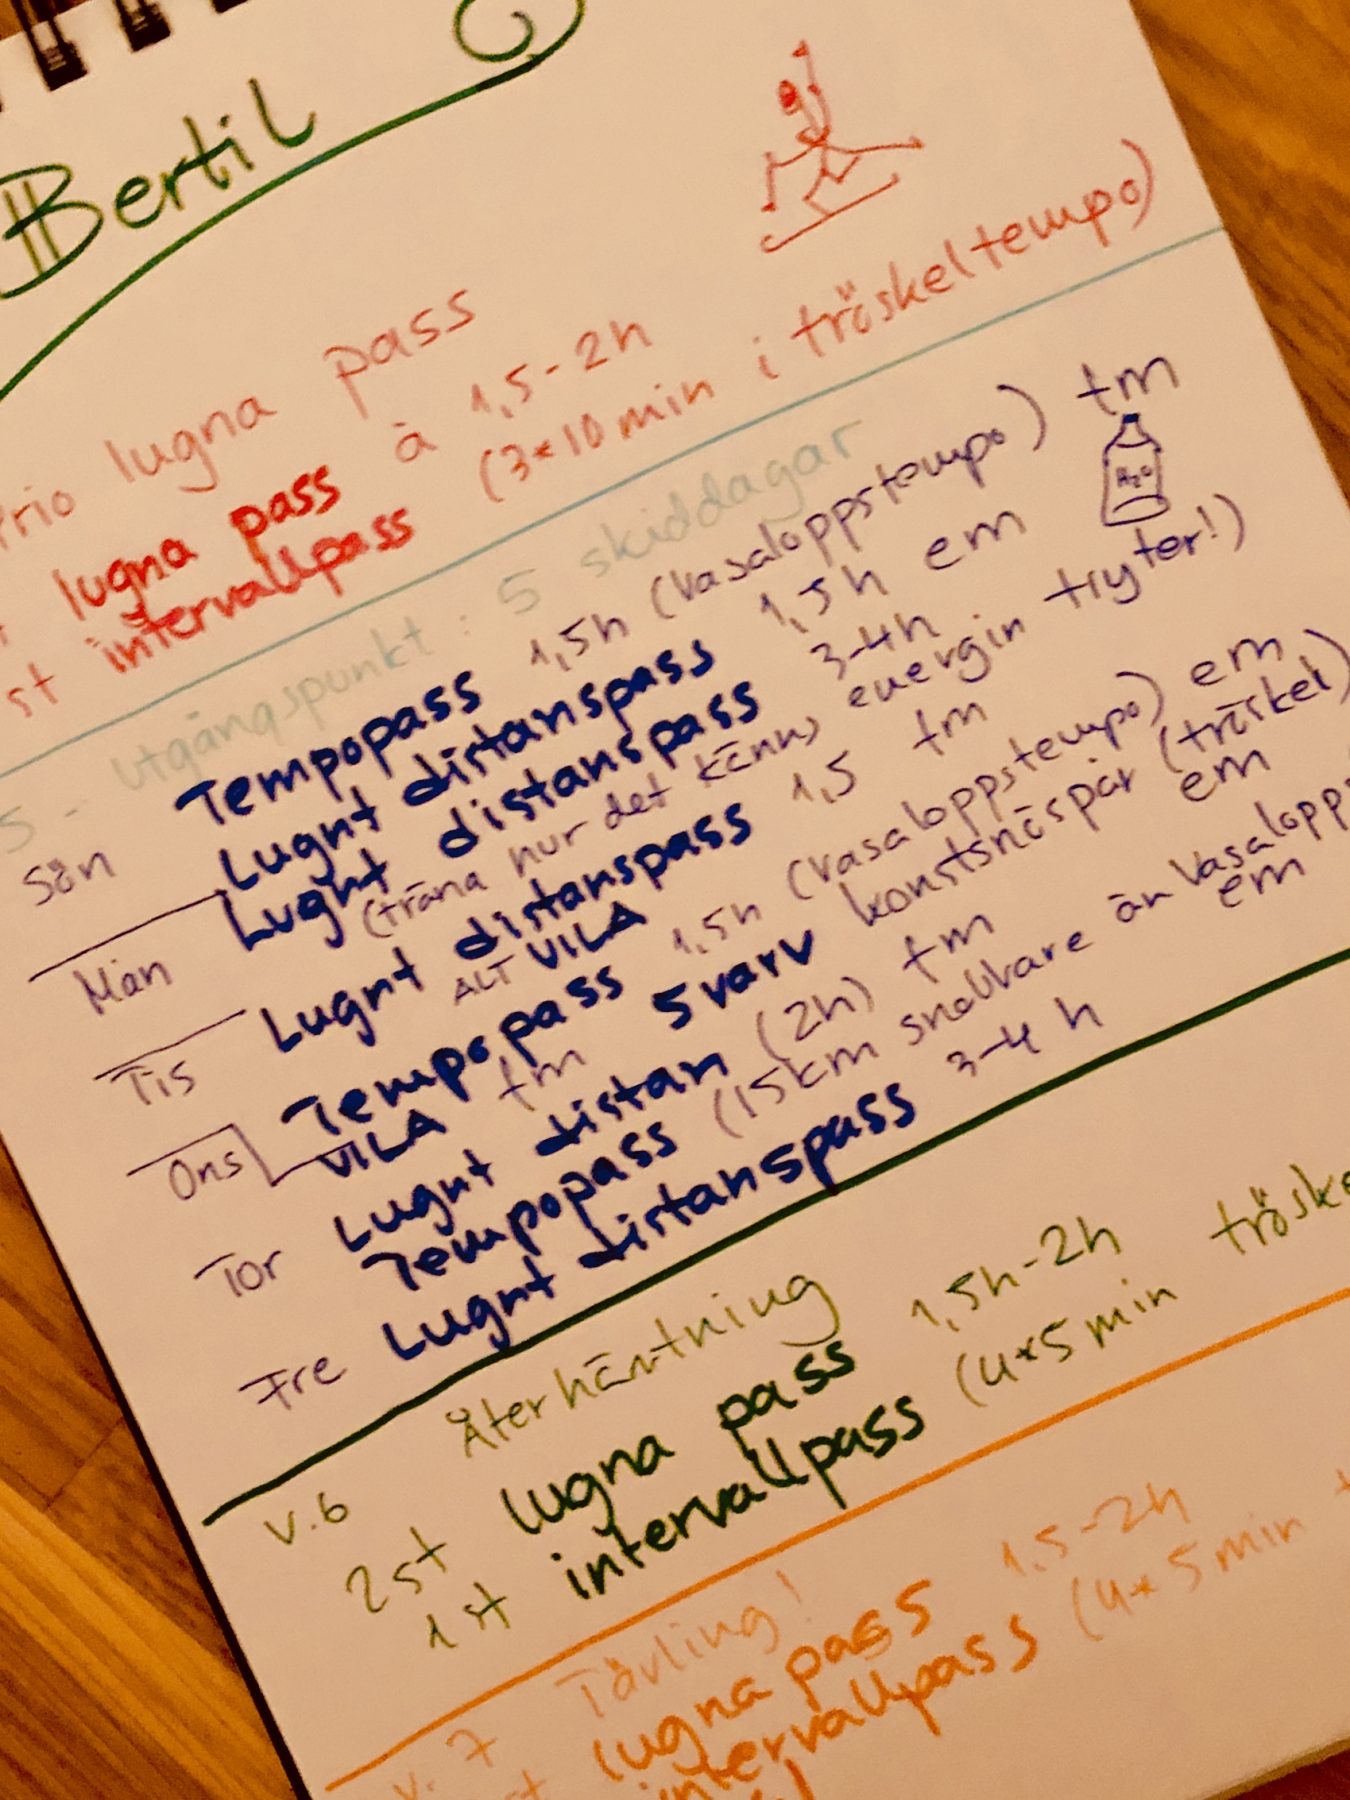 Bertil
Prio lugna pass
lugna pass à 1,5-2h
st intervallpass (3*10min i tröskeltempo)
5 - utgångspunkt: 5 skiddagar
Sön Tempopass 1,5h (vasaloppstempo) fm
H2O
Lugnt distanspass 1,5h em
Mån Lugnt distanspass 3-4h
(träna hur det känns energin tryter!)
Tis Lugnt distanspass 1,5 fm
ALT VILA
Ons Tempopass 1,5h (vasaloppstempo) em
VILA fm 5 varv konstsnöspår (tröskel) em
Tor Lugnt distan (2h) fm
Tempopass (15km snabbare än vasalopps em
Fre Lugnt distanspass 3-4 h
v.6 Återhämtning
2st lugna pass 1,5h-2h
1st intervallpass (4*5min tröske
v.7 Tävling!
st lugna pass 1,5-2h
intervallpass (4*5min